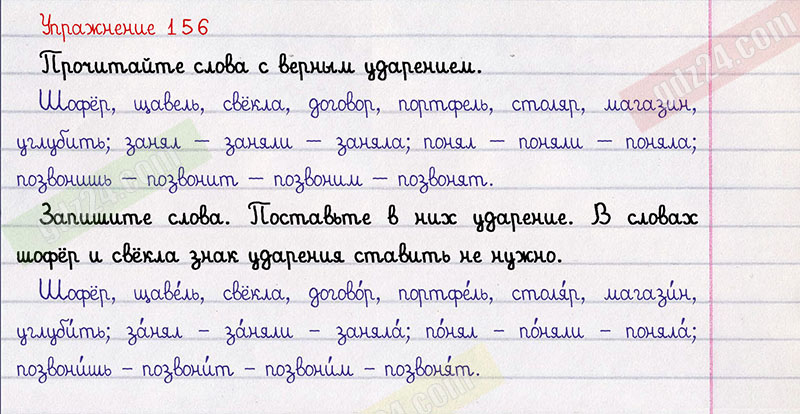 Упражнение 156
Прочитайте слова с верным ударением.
Шофёр, щавель, свёкла, договор, портфель, столяр, магазин,
углубить; занял – заняли – заняла; понял – поняли – поняла;
позвонишь – позвонит – позвоним – позвонят.
Запишите слова. Поставьте в них ударение. В словах
шофёр и свёкла знак ударения ставить не нужно.
Шофёр, щаве́ль, свёкла, догово́р, портфе́ль, столя́р, магази́н,
углуби́ть; за́нял – за́няли – заняла́; по́нял – по́няли – поняла́;
позвони́шь – позвони́т – позвони́м – позвоня́т.
gdz24.com
gdz24.com
gdz24.com